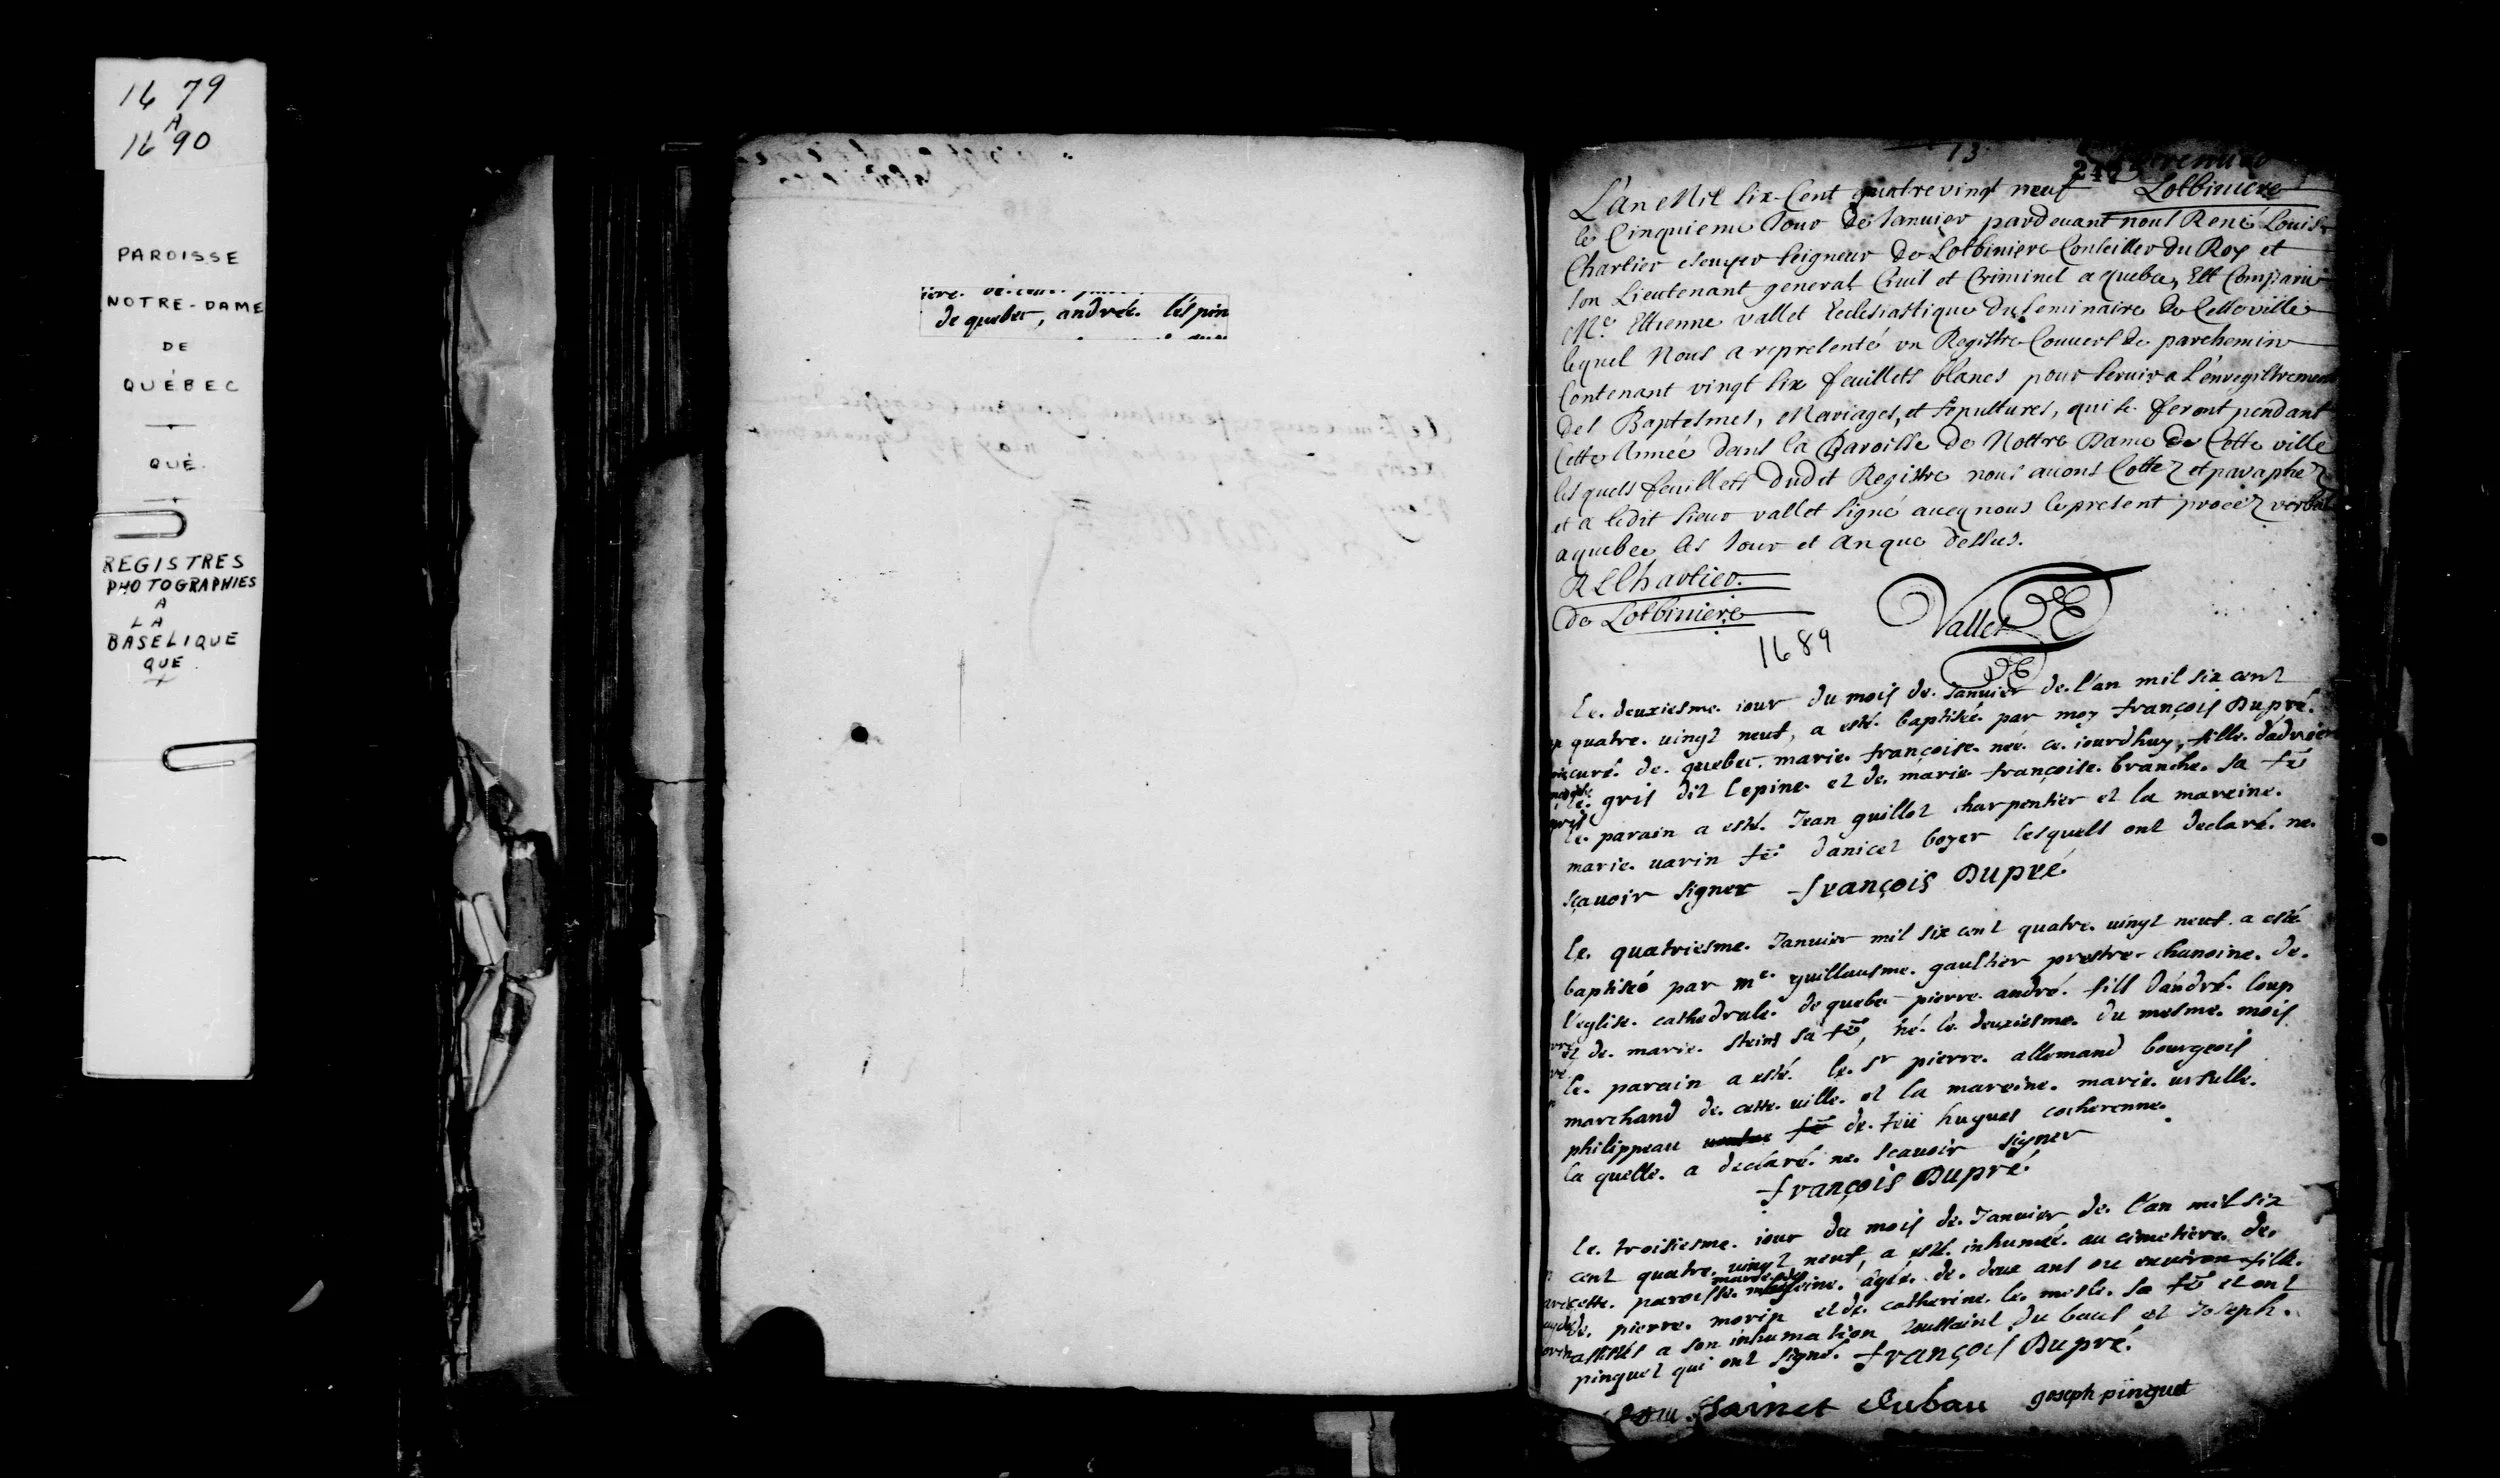 1679
A
1690
PAROISSE
NOTRE-DAME
DE
QUÉBEC
QUÉ.
REGISTRES
PHOTOGRAPHIES
A
LA
BASELIQUE
QUE
de quebec, andrée. l'éspin
13
Lotbiniere
L'an Mil six-Cent quatrevingt neuf
le Cinquieme Jour de Januier pardeuant nous René Louis
Chartier escuyer seigneur de Lotbiniere Conseiller du Roy et
son Lieutenant general Ciuil et Criminel a quebec, Est Comparu
Me. Estienne vallet Ecclesiastique du seminaire de Cette ville
lequel Nous a representé vn Registre Couuert de parchemin
Contenant vingt six feuillets blancs pour seruir a L'enregistrement
des Baptesmes, Mariages, et sepultures, qui se feront pendant
Cette Année dans la Paroisse de Nostre Dame de Cette ville
lesquels feuillets dudit Registre nous auons Cottez et paraphez
et a ledit sieur vallet signé auecq nous le present procez verbal
a quebec les Jour et an que dessus.
RLChartier
de Lotbiniere
Vallet
1689
le. deuxiesme. iour du mois de. Januier de. l'an mil six cent
quatre. uingt neuf, a esté. baptisée. par moy françois Dupré.
curé. de. quebec. marie. françoise. née. ce. iourdhuy, fille. d'adrien
le. gris dit lepine. et de. marie. françoise. branche. sa fē
le. parain a esté. Jean guillot charpentier et la mareine.
marie. uarin fē. d'anicet boyer lesquels ont declaré. ne.
sçauoir signer françois Dupré.
le. quatriesme. Januier mil six cent quatre. uingt neuf. a esté
baptisé par me. guillausme. gaultier prestre. chanoine. de.
l'eglise. cathedrale. de quebec pierre. andré. fils d'andré. loup
et de. marie. steins sa fē, né. le. deuxiesme. du mesme. mois
le. parain a esté. le. sr pierre. allemand bourgeois
marchand de. cette. uille. et la mareine. marie. ursulle.
philippeau fē de. feu hugues cocherenne.
la quelle. a declaré. ne. scauoir signer
françois Dupré.
le. troisiesme. iour du mois de. Januier de. l'an mil six
cent quatre. uingt neuf, a esté. inhumée. au cimetiere. de.
cette. paroisse. âgée. de. deux ans ou enuiron fille.
de. pierre. morin et de. catherine. le. mesle. sa fē et ont
assistés a son inhumation toussaint du baut et Joseph.
pinguet qui ont signé. françois Dupré.
toussainct dubau joseph pinguet